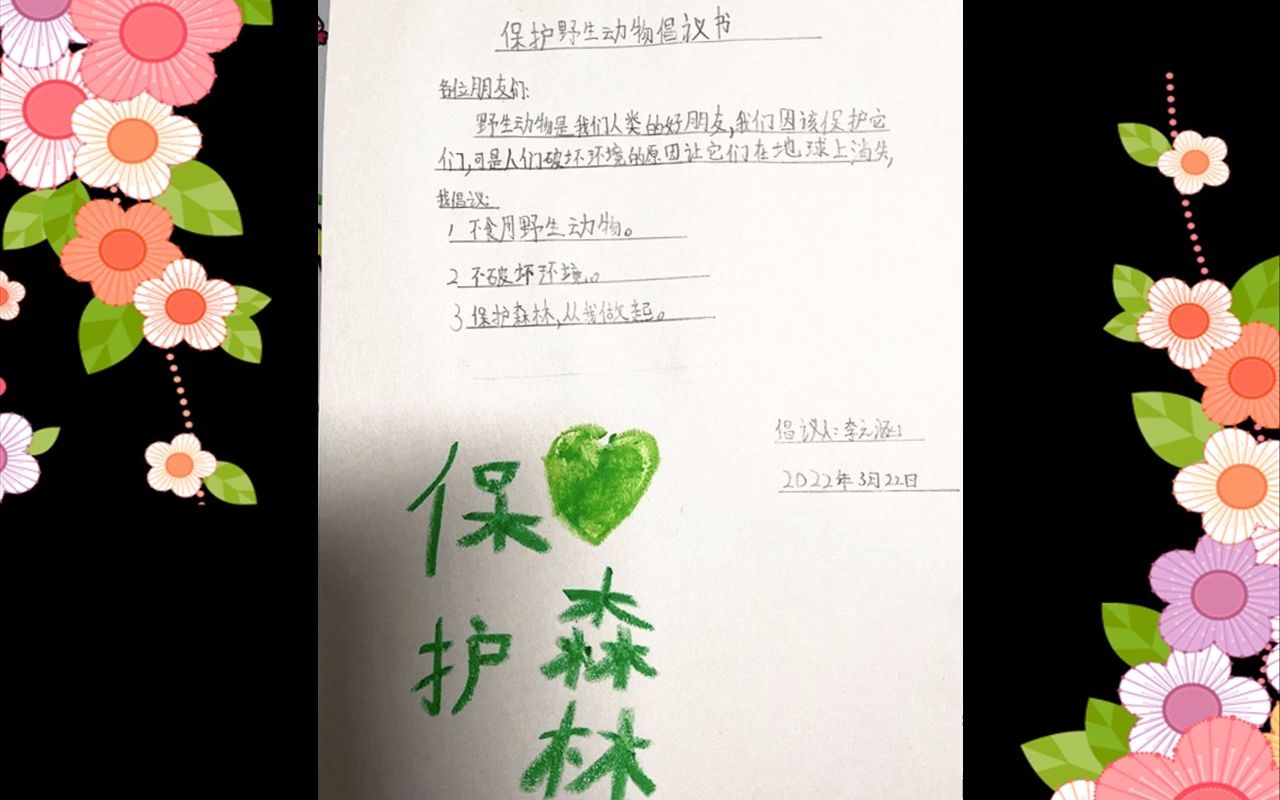 保护野生动物倡议书
各位朋友们:
野生动物是我们人类的好朋友,我们因该保护它
们,可是人们破坏环境的原因让它们在地球上消失,
我倡议:
1 不食用野生动物。
2 不破坏环境。
3 保护森林,从我做起。
倡议人:李元涵
2022年3月22日
保
护
森
林